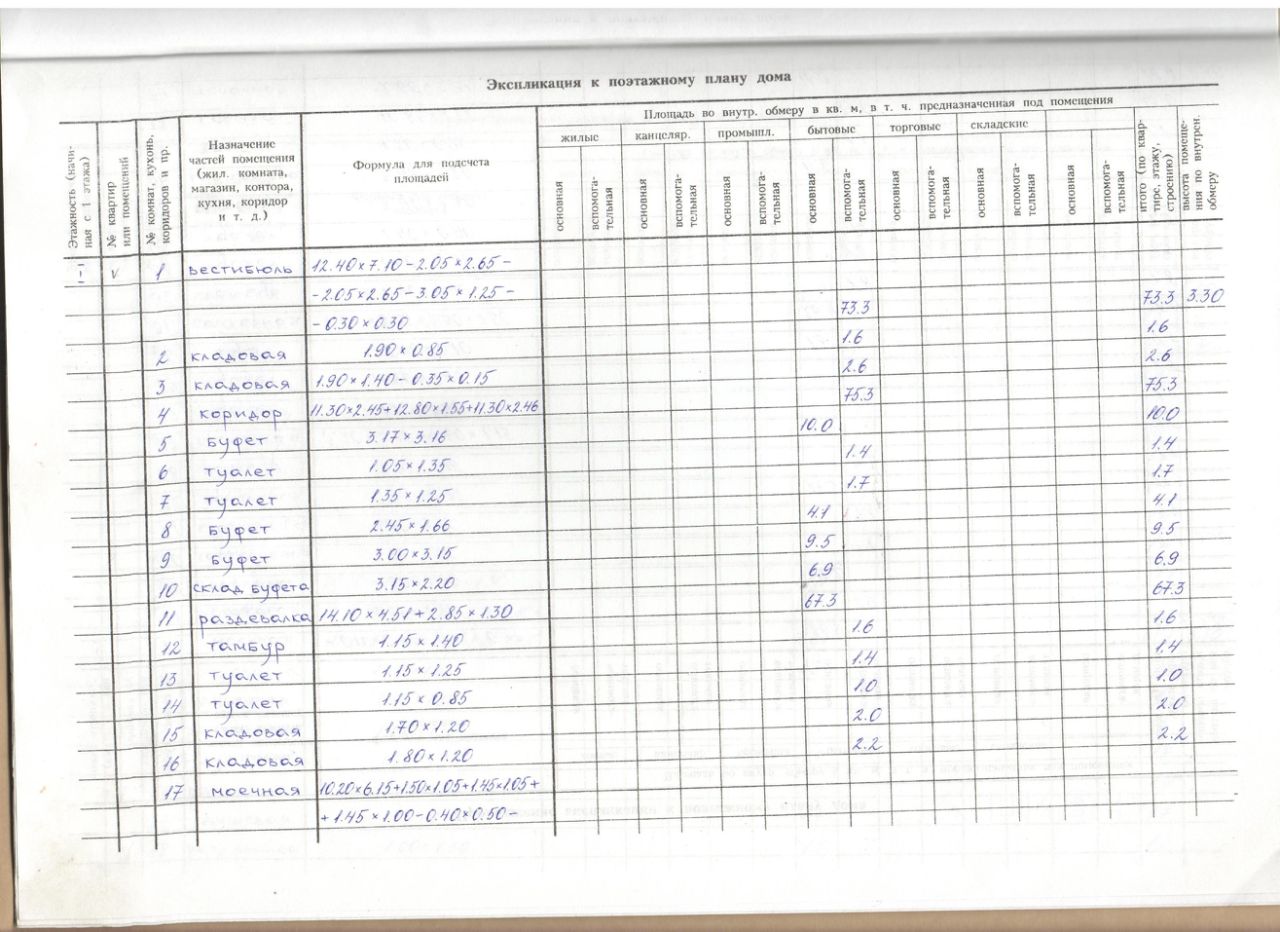 Экспликация к поэтажному плану дома
Этажность (начиная с 1 этажа)
№ квартир или помещений
№ комнат, кухонь, коридоров и пр.
Назначение частей помещения (жил. комната, магазин, контора, кухня, коридор и т. д.)
Формула для подсчета площадей
Площадь во внутр. обмеру в кв. м, в т. ч. предназначенная под помещения
жилые канцеляр. промышл. бытовые торговые складские
основная вспомога-тельная основная вспомога-тельная основная вспомога-тельная основная вспомога-тельная основная вспомога-тельная основная вспомога-тельная основная вспомога-тельная
итого (по квартире, этажу, строению)
высота помещения по внутрен. обмеру
I V 1 вестибюль 12.40×7.10-2.05×2.65-
-2.05×2.65-3.05×1.25- 73.3 73.3 3.30
-0.30×0.30
2 кладовая 1.90×0.85 1.6 1.6
3 кладовая 1.90×1.40-0.35×0.15 2.6 2.6
4 коридор 11.30×2.45+12.80×1.55+11.30×2.46 75.3 75.3
5 буфет 3.17×3.16 10.0 10.0
6 туалет 1.05×1.35 1.4 1.4
7 туалет 1.35×1.25 1.7 1.7
8 буфет 2.45×1.66 4.1 4.1
9 буфет 3.00×3.15 9.5 9.5
10 склад буфета 3.15×2.20 6.9 6.9
11 раздевалка 14.10×4.51+2.85×1.30 67.3 67.3
12 тамбур 1.15×1.40 1.6 1.6
13 туалет 1.15×1.25 1.4 1.4
14 туалет 1.15×0.85 1.0 1.0
15 кладовая 1.70×1.20 2.0 2.0
16 кладовая 1.80×1.20 2.2 2.2
17 моечная 10.20×6.15+1.50×1.05+1.45×1.05+
+1.45×1.00-0.40×0.50-